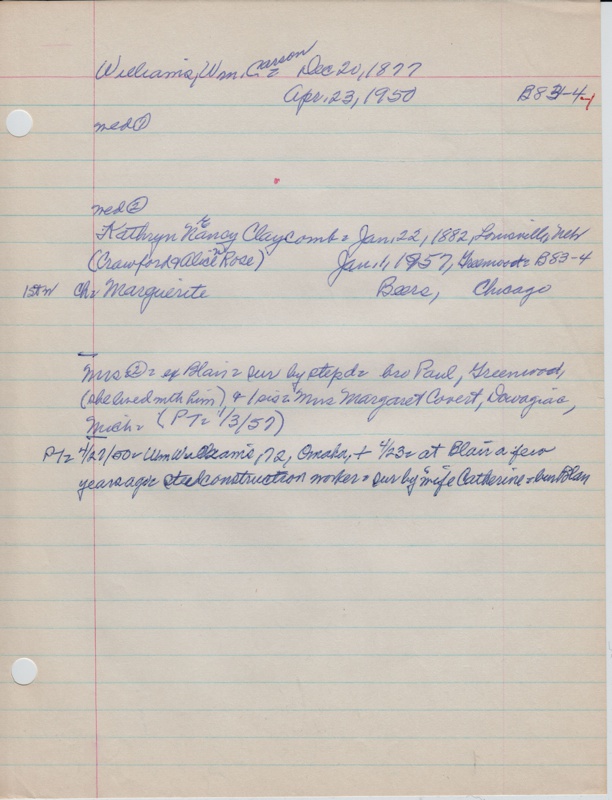 Williams, Wm. Carson = Dec 20, 1877
Apr. 23, 1950 B83-4
med ①
med ②
Kathryn Nancy Claycomb = Jan. 22, 1882, Louisville, Neb
(Crawford & Alice Rose) Jan. 1, 1957, Greenwood = B83-4
1st W Ch = Marguerite Beers, Chicago
Mrs ② = ex Blair = sur by stepd = bro Paul, Greenwood,
(she lived with him) & 1 sis = Mrs Margaret Covert, Dowagiac,
Mich = (PT = 1/3/57)
PT = 4/27/50 = Wm Williams, 72, Omaha, + 4/23 = at Blair a few
years ago = steel construction worker = sur by "wife Catherine = bur Blair